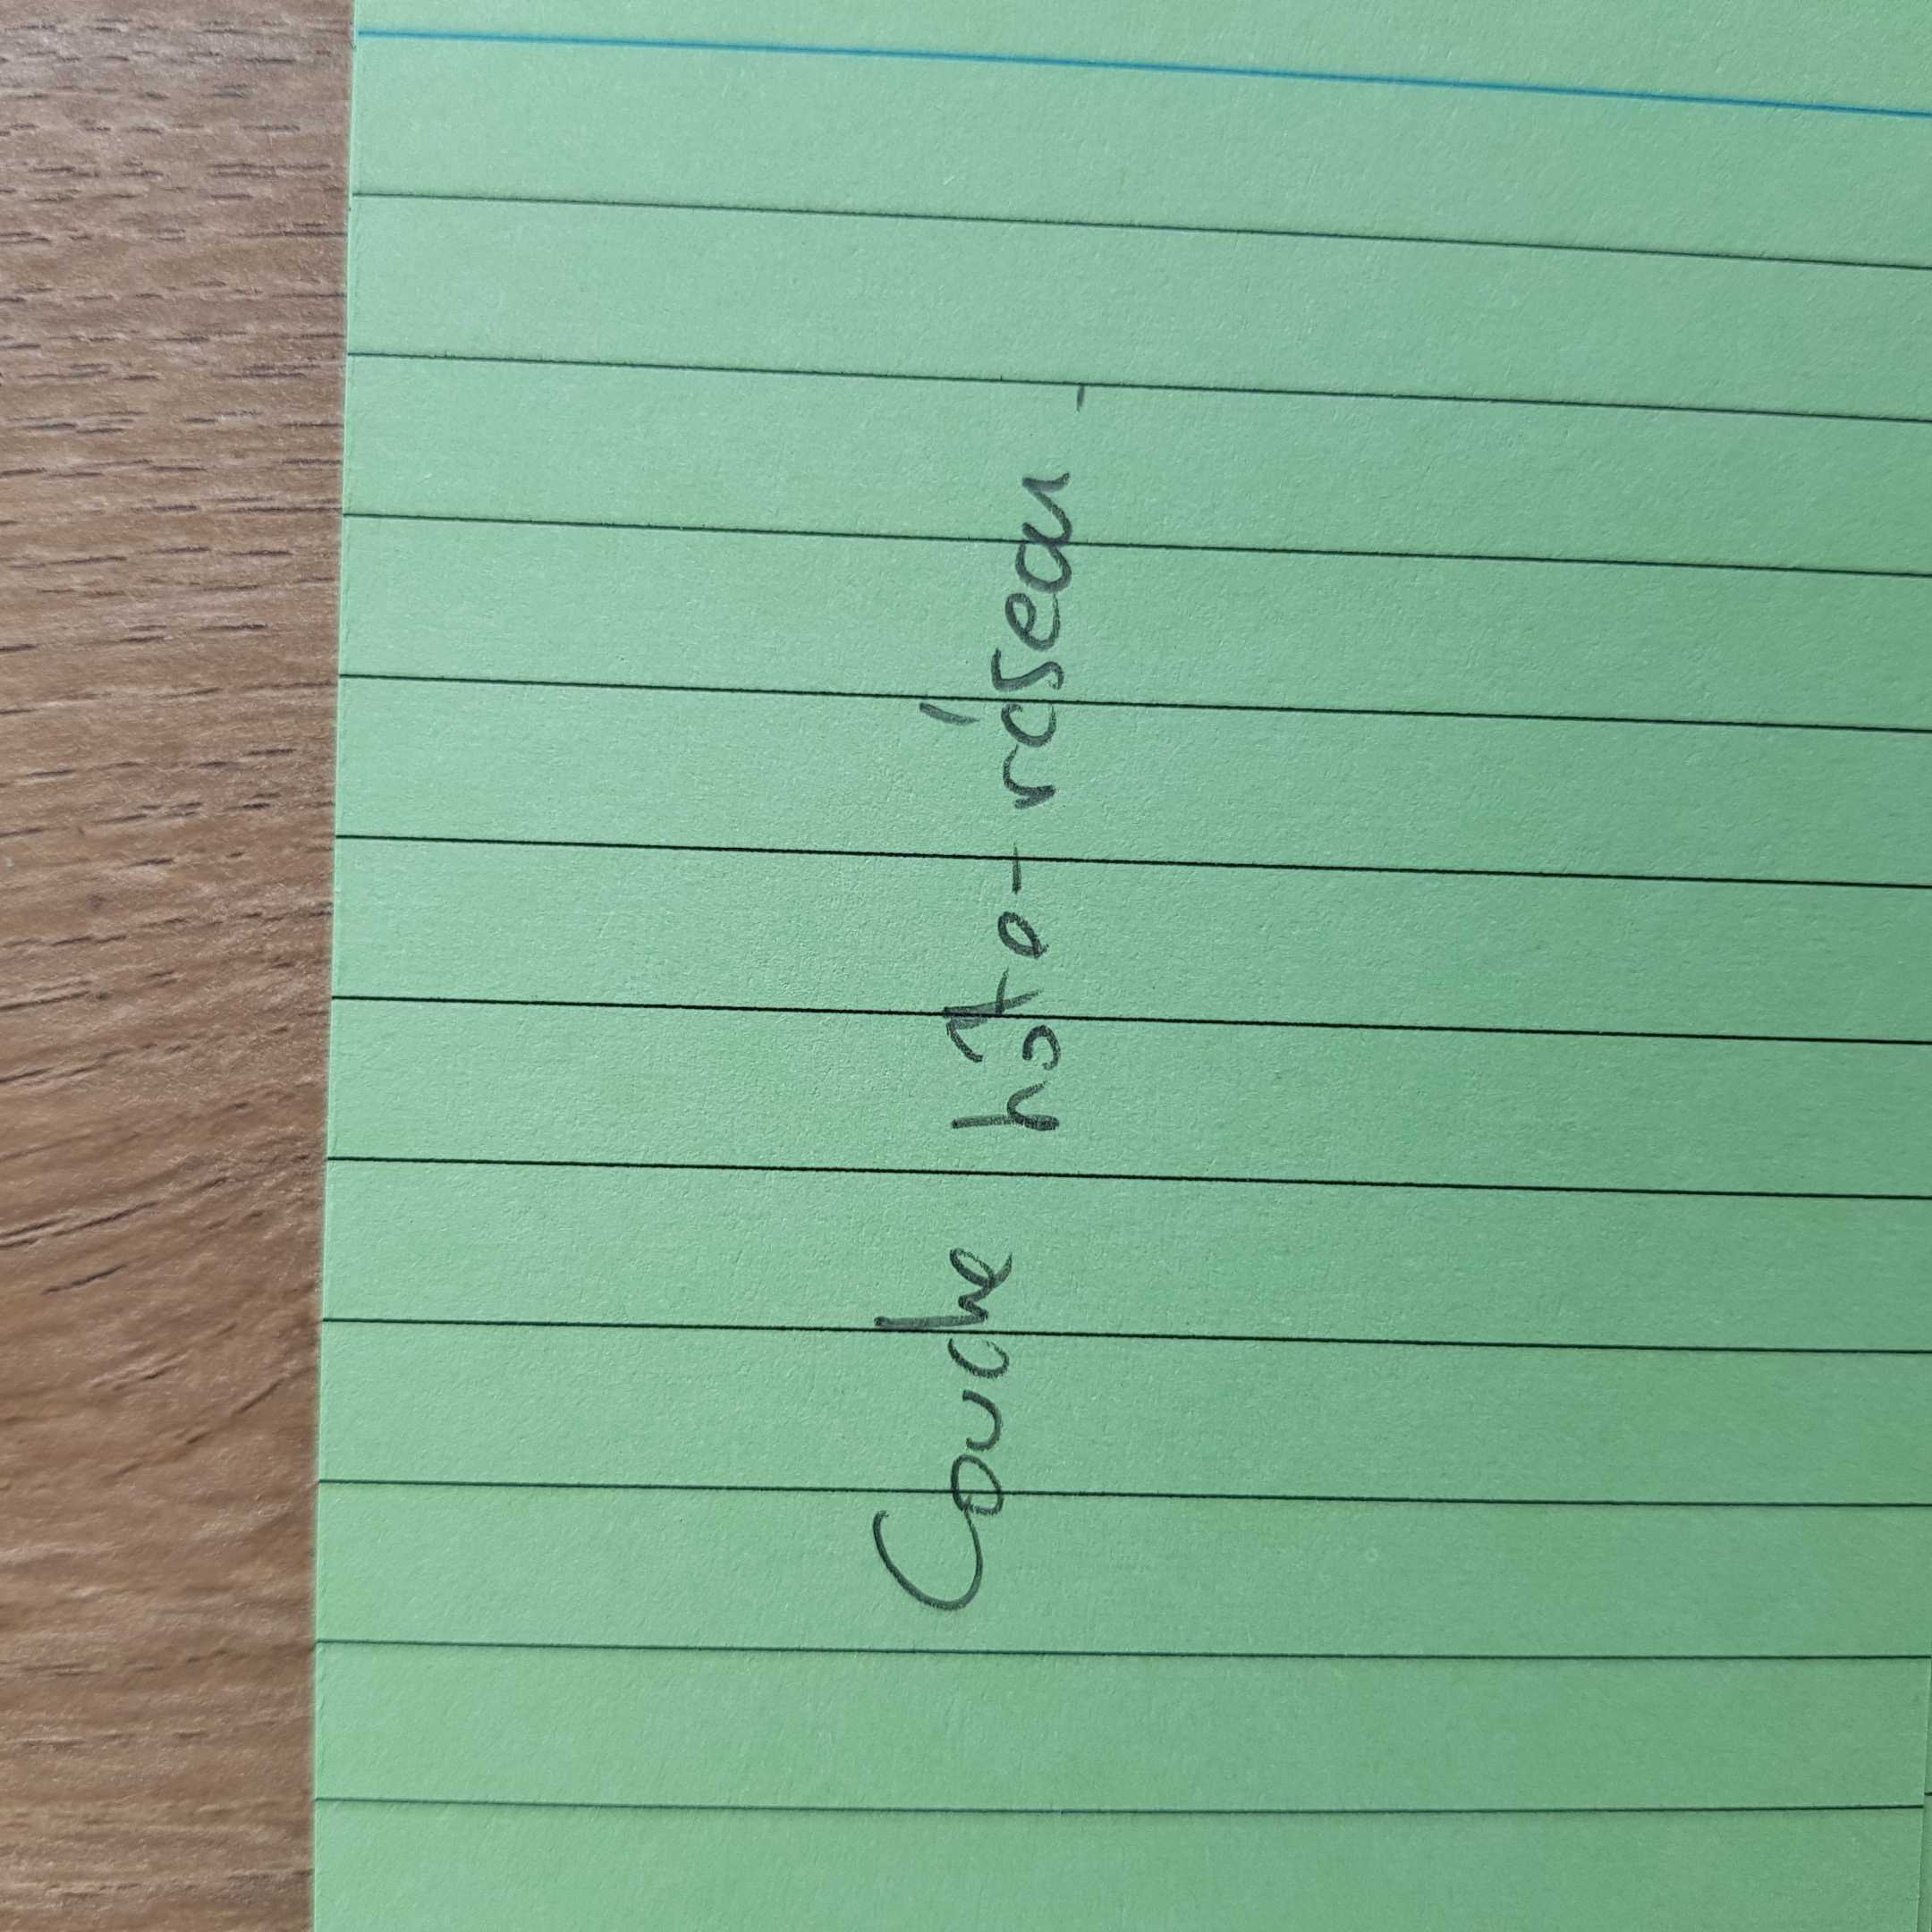 Couche hôte-réseau -